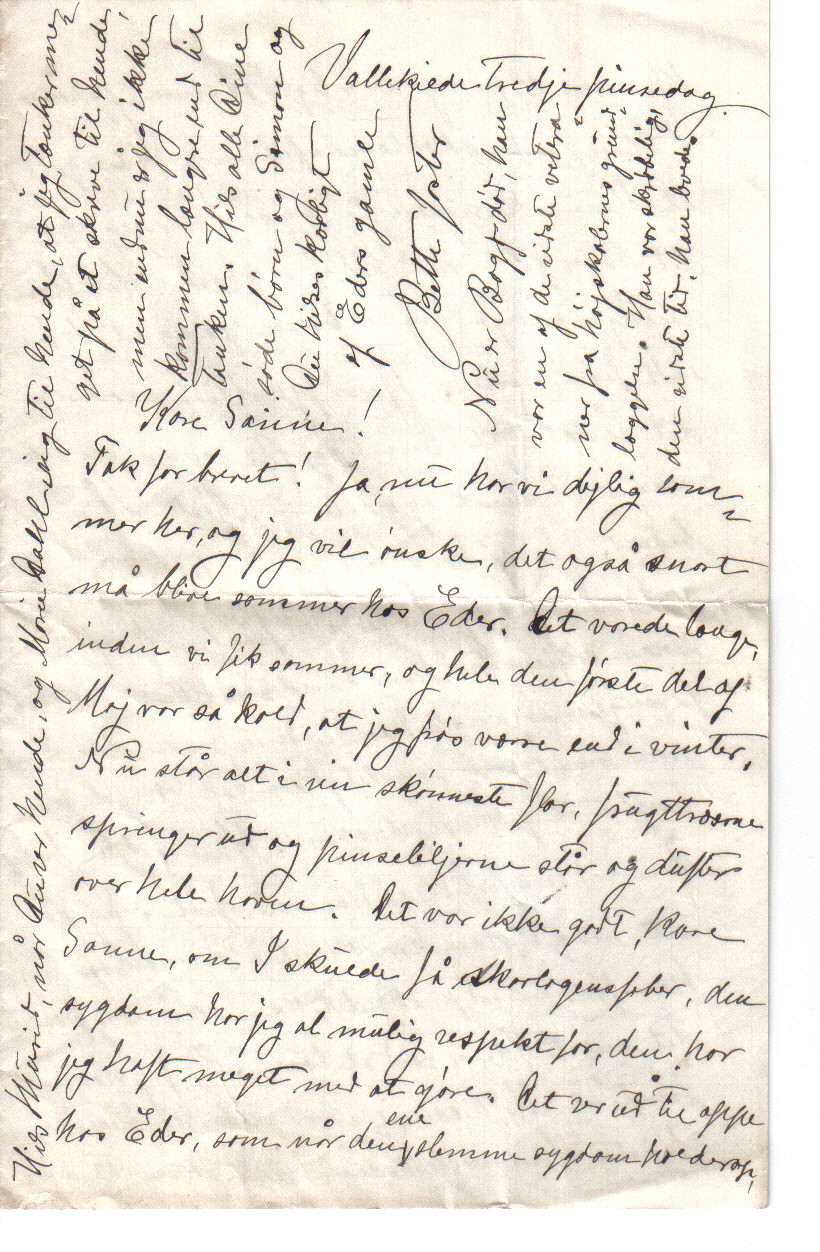 Vallekilde tredje pinsedag.
Kære Sanne!
Tak for brevet! Ja, nu har vi dejlig som-
mer her, og jeg vil ønske, det også snart
må blive sommer hos Eder. Det varede længe,
inden vi fik sommer, og hele den første del af
Maj var så kold, at jeg frøs værre end i vinter.
Nu står alt i sin skønneste flor, frugttræerne
springer ud og pinseliljerne står og dufter
over hele haven. Det var ikke godt, kære
Sanne, om I skulde få skarlagensfeber, den
sygdom har jeg al mulig respekt for, den har
jeg haft meget med at gøre. Det ser ud til oppe
hos Eder, som når den ene slemme sygdom holder op,
Hils Marit, når Du ser hende, og Marie Dahl og sig til hende, at jeg tænker me-
get på at skrive til hende,
men endnu er jeg ikke
kommen længre end til
tanken. Hils alle Dine
søde børn og Simon og
Du hilses kærligt
af Eders gamle
Bette faster
Nu er Bågø død, han
var en af de sidste vetera-
ner fra højskolernes grund-
læggelse. Han var skrøbelig,
den sidste tid, han levede.